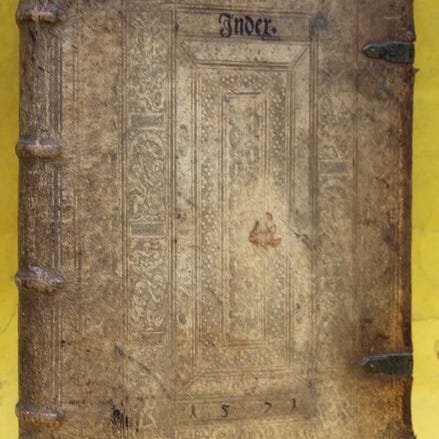 Index.
1571